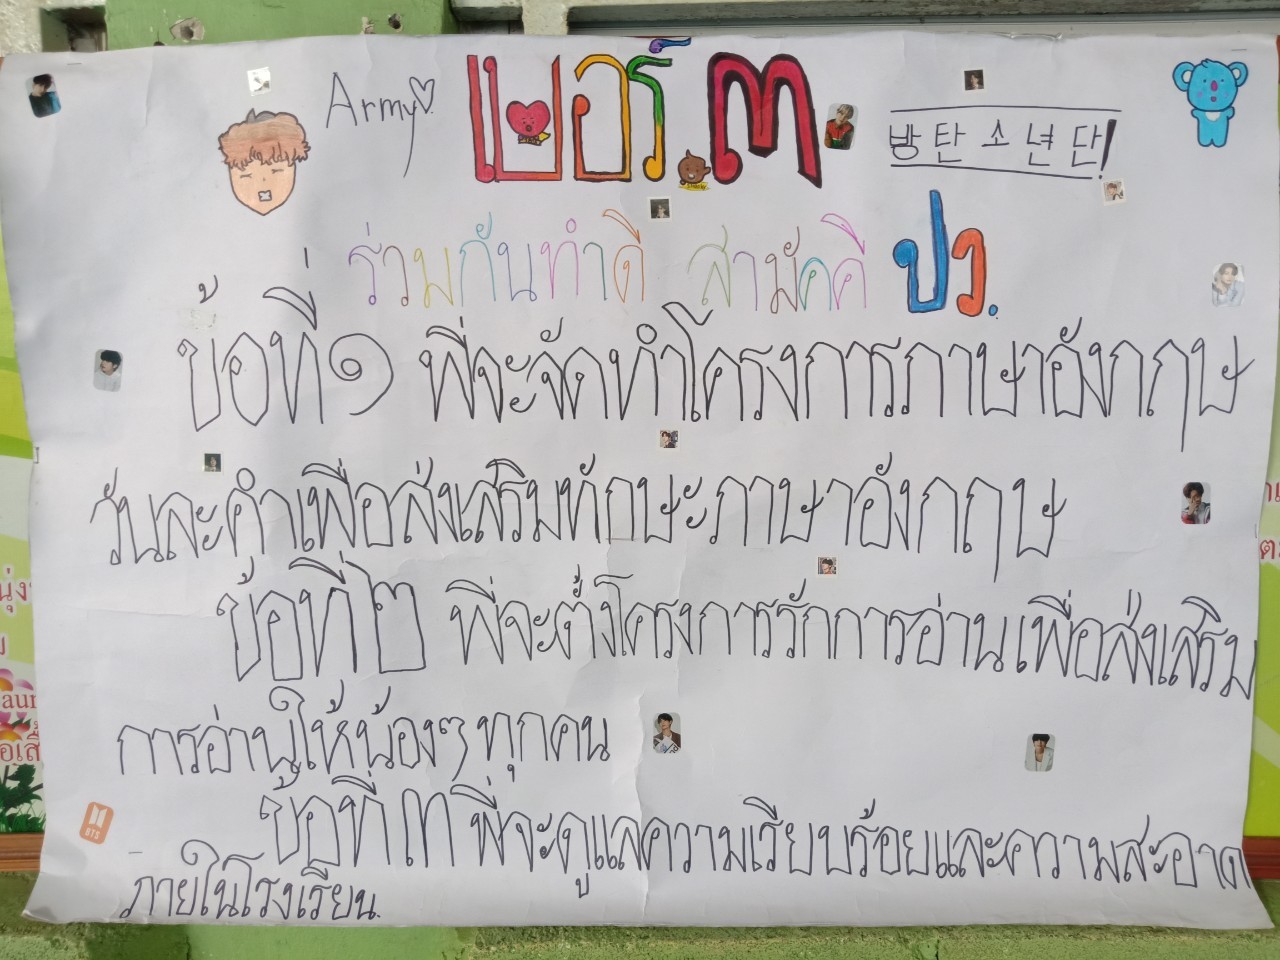 Army
เบอร์ ๓
방탄소년단!
ร่วมกันทำดี สามัคคี ปว.
ข้อที่ ๑ พี่จะจัดทำโครงการภาษาอังกฤษ
วันละคำเพื่อส่งเสริมทักษะภาษาอังกฤษ
ข้อที่ ๒ พี่จะตั้งโครงการรักการอ่านเพื่อส่งเสริม
การอ่านให้น้องๆ ทุกคน
ข้อที่ ๓ พี่จะดูแลความเรียบร้อยและความสะอาด
ภายในโรงเรียน.
BTS